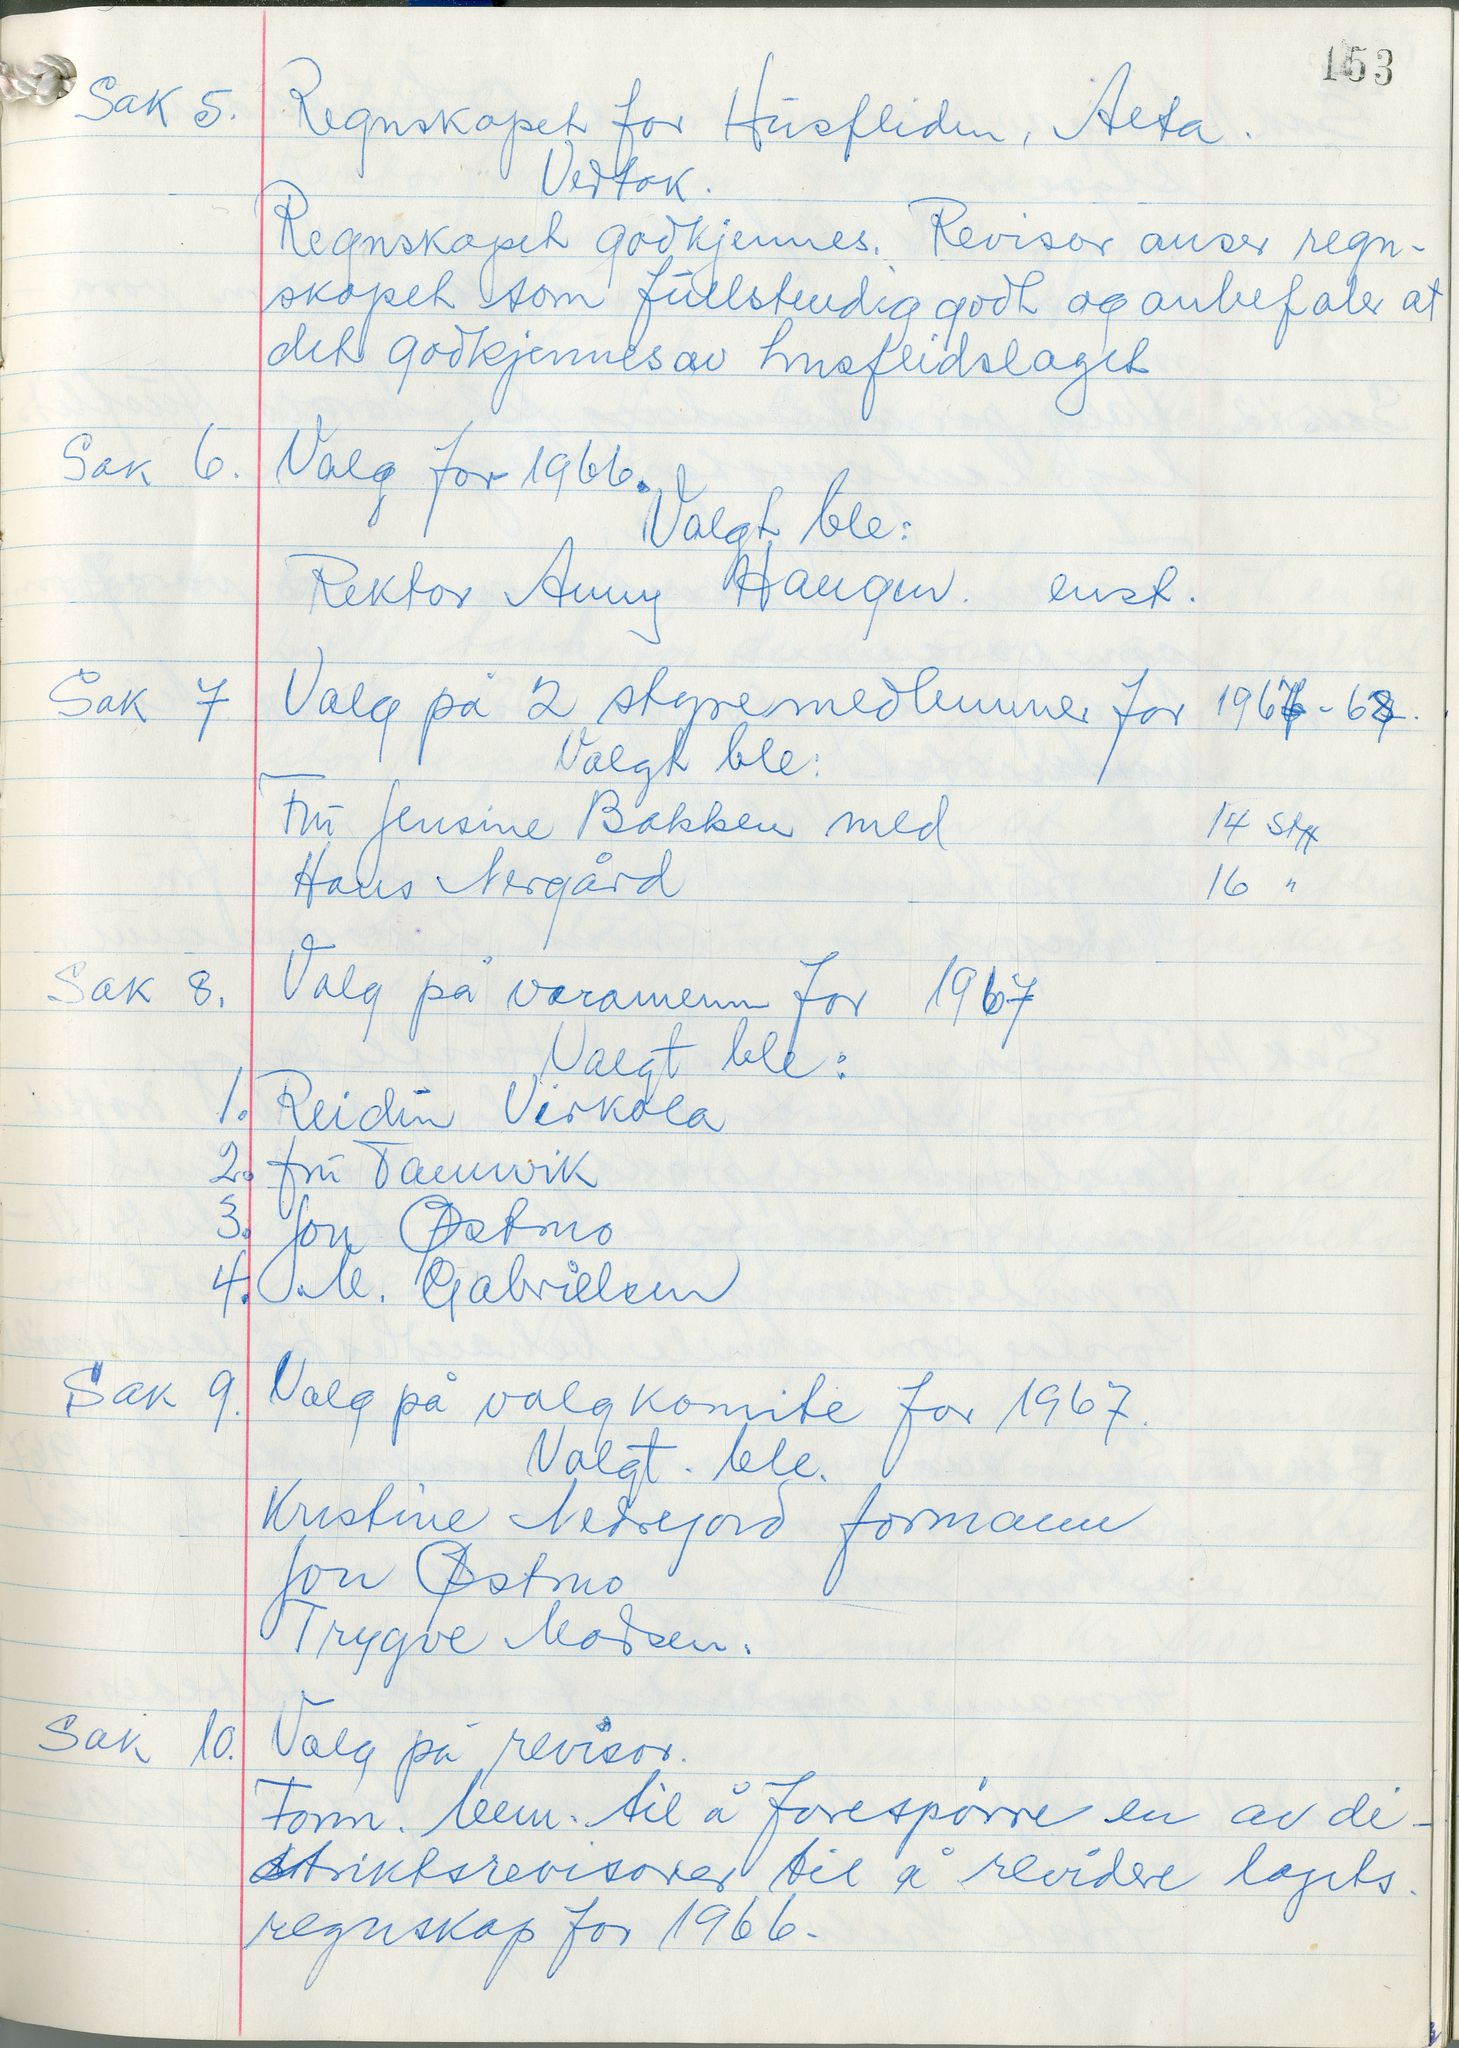 153
Sak 5. Regnskapet for Husfliden, Alta.
Vedtak.
Regnskapet godkjennes. Revisor anser regn-
skapet som fullstendig godt og anbefaler at
det godkjennes av husflidslaget
Sak 6. Valg for 1966.
Valgt ble:
Rektor Anny Haugen. enst.
Sak 7 Valg på 2 styremedlemmer for 1967-68.
Valgt ble:
Fru Jensine Bakken med 14 st
Hans Nergård 16 "
Sak 8. Valg på varamenn for 1967
Valgt ble:
1. Reidun Virkola
2. fru Tannvik
3. Jon Østmo
4. M. Gabrielsen
Sak 9. Valg på valgkomite for 1967.
Valgt. ble.
Kristine Nedrejord formann
Jon Østmo
Trygve Madsen.
Sak 10. Valg på revisor.
Form. bem. til å forespørre en av di-
striktsrevisorer til å revidere lagets
regnskap for 1966.